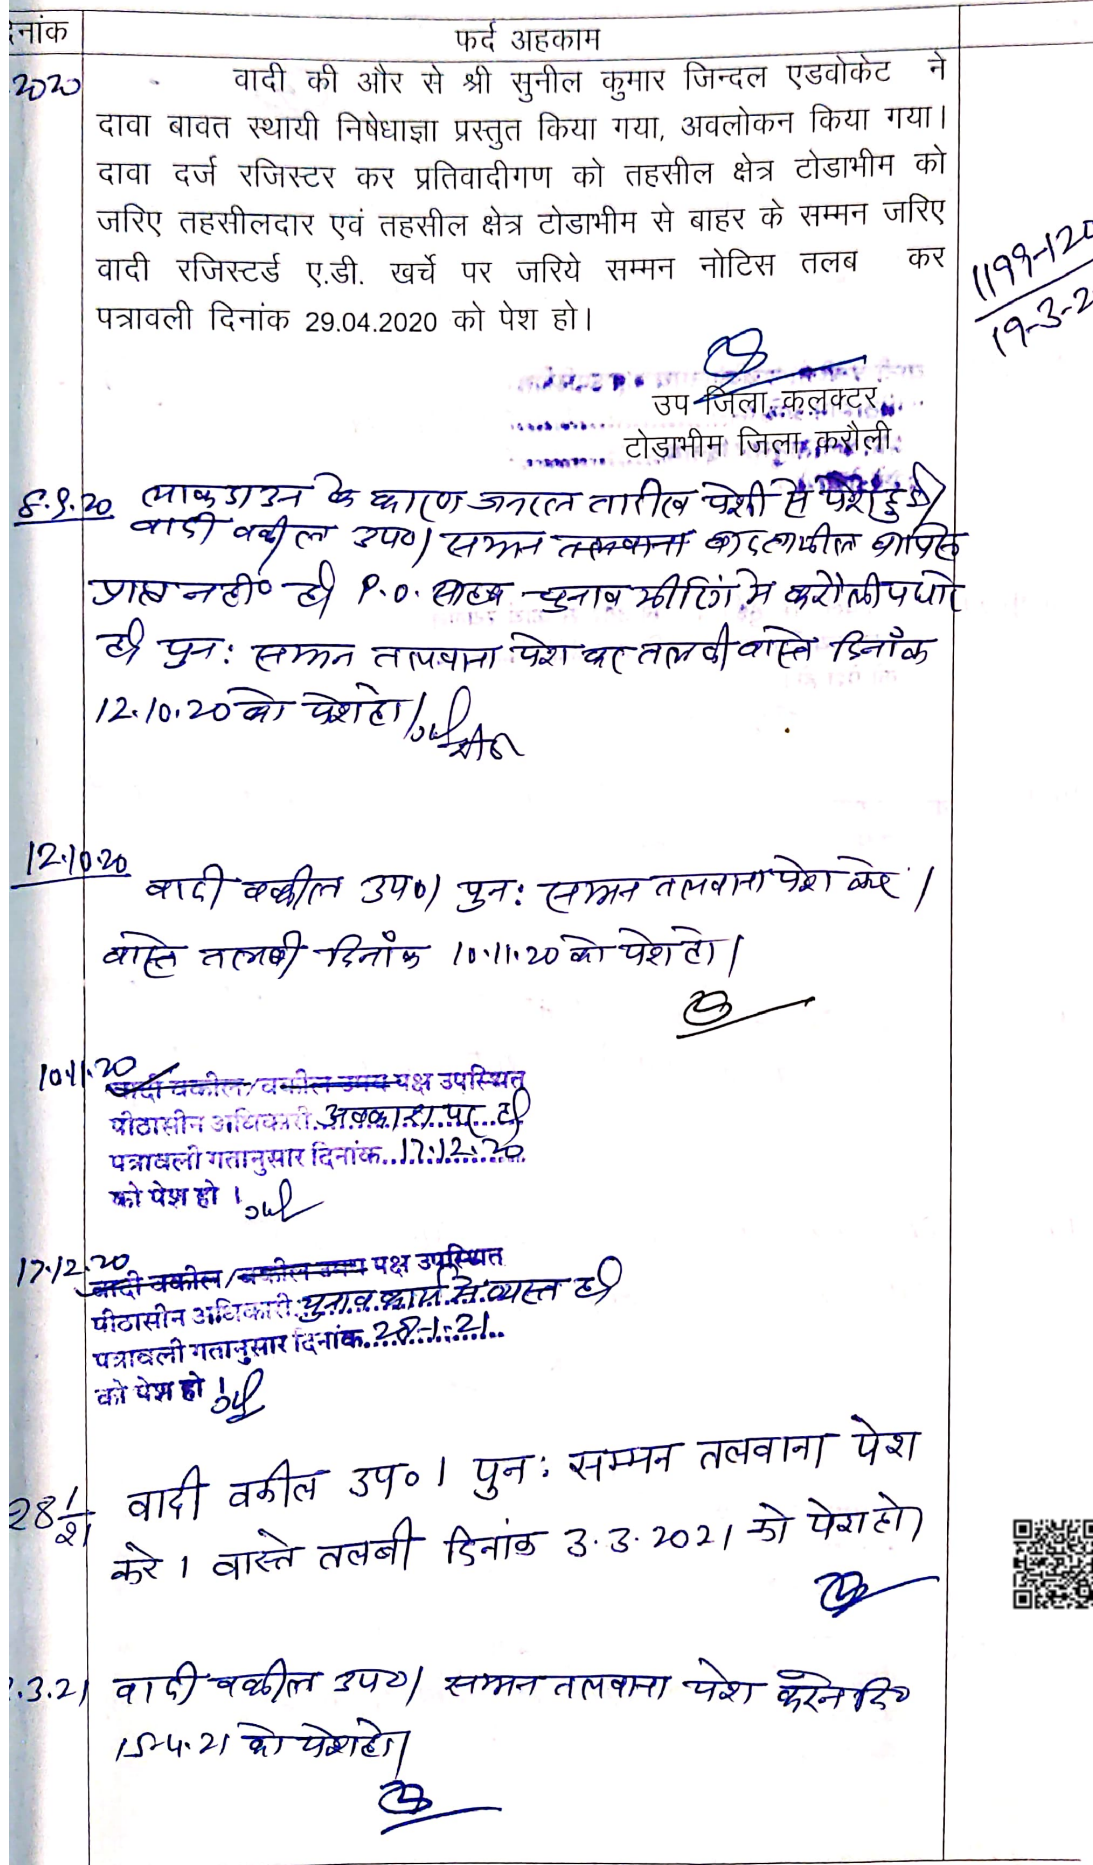 दिनांक
फर्द अहकाम
2020
वादी की और से श्री सुनील कुमार जिन्दल एडवोकेट ने
दावा बावत स्थायी निषेधाज्ञा प्रस्तुत किया गया, अवलोकन किया गया।
दावा दर्ज रजिस्टर कर प्रतिवादीगण को तहसील क्षेत्र टोडाभीम को
जरिए तहसीलदार एवं तहसील क्षेत्र टोडाभीम से बाहर के सम्मन जरिए
वादी रजिस्टर्ड ए.डी. खर्चे पर जरिये सम्मन नोटिस तलब कर
पत्रावली दिनांक 29.04.2020 को पेश हो।
1199-120
19-3-2
उप जिला कलक्टर
टोडाभीम जिला करौली
8.9.20 लाकडाउन के कारण जनरल तारीख पेशी से पेश हुई।
वादी वकील उप०। सम्मन तलवाना बाद तामील वापिस
प्राप्त नहीं० है। P.O. साहब चुनाव मीटिंग में करौली पधारे
है। पुनः सम्मन तलवाना पेश कर तलवी वास्ते दिनाँक
12.10.20 को पेश हो।
12.10.20
वादी वकील उप०। पुनः सम्मन तलवाना पेश करे।
वास्ते तलबी दिनाँक 10.11.20 को पेश हो।
10.11.20
वादी वकील/वकील उभय पक्ष उपस्थित
पीठासीन अधिकारी अवकाश पर है।
पत्रावली गतानुसार दिनांक 17.12.20
को पेश हो।
17.12.20
वादी वकील/वकील उभय पक्ष उपस्थित
पीठासीन अधिकारी चुनाव कार्य में व्यस्त है।
पत्रावली गतानुसार दिनांक 28.1.21
को पेश हो।
28/1/21 वादी वकील उप०। पुनः सम्मन तलवाना पेश
करे। वास्ते तलबी दिनांक 3.3.2021 को पेश हो।
.3.21 वादी वकील उप०। सम्मन तलवाना पेश करने दि०
15-4.21 को पेश हो।